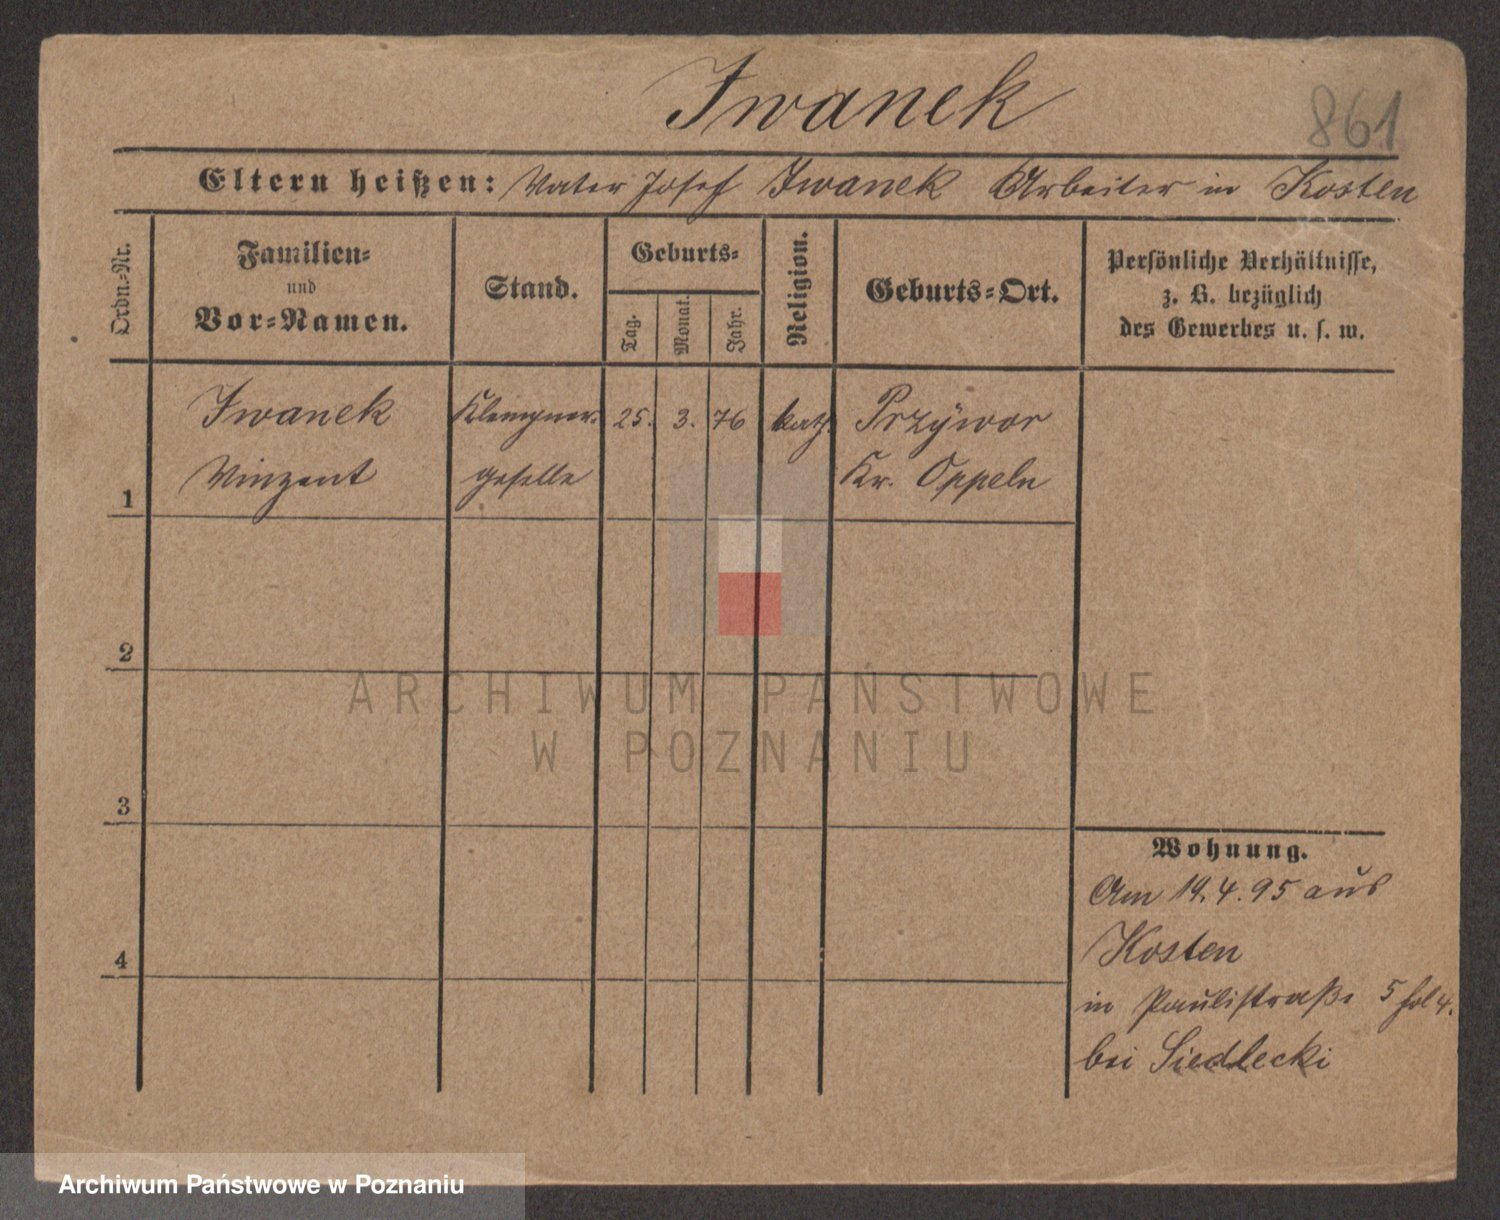 Iwanek
861
Eltern heißen: Vater Josef Iwanek Arbeiter in Kosten
Ordn.-Nr.
Familien-
und
Vor-Namen.
Stand.
Geburts-
Tag.
Monat.
Jahr.
Religion.
Geburts-Ort.
Persönliche Verhältnisse,
z. B. bezüglich
des Gewerbes u. s. w.
1
Iwanek
Vinzent
Klempner-
geselle
25.
3.
76
kath.
Przÿwor
Kr. Oppeln
2
3
4
Wohnung.
Am 19.4.95 aus
Kosten
in Paulistraße 5 hof 4.
bei Siedlecki
ARCHIWUM PAŃSTWOWE
W POZNANIU
Archiwum Państwowe w Poznaniu